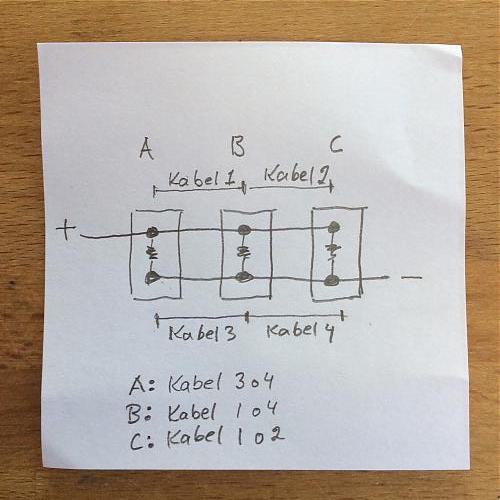 A B C
Kabel 1 Kabel 2
+
-
Kabel 3 Kabel 4
A: Kabel 3 o 4
B: Kabel 1 o 4
C: Kabel 1 o 2